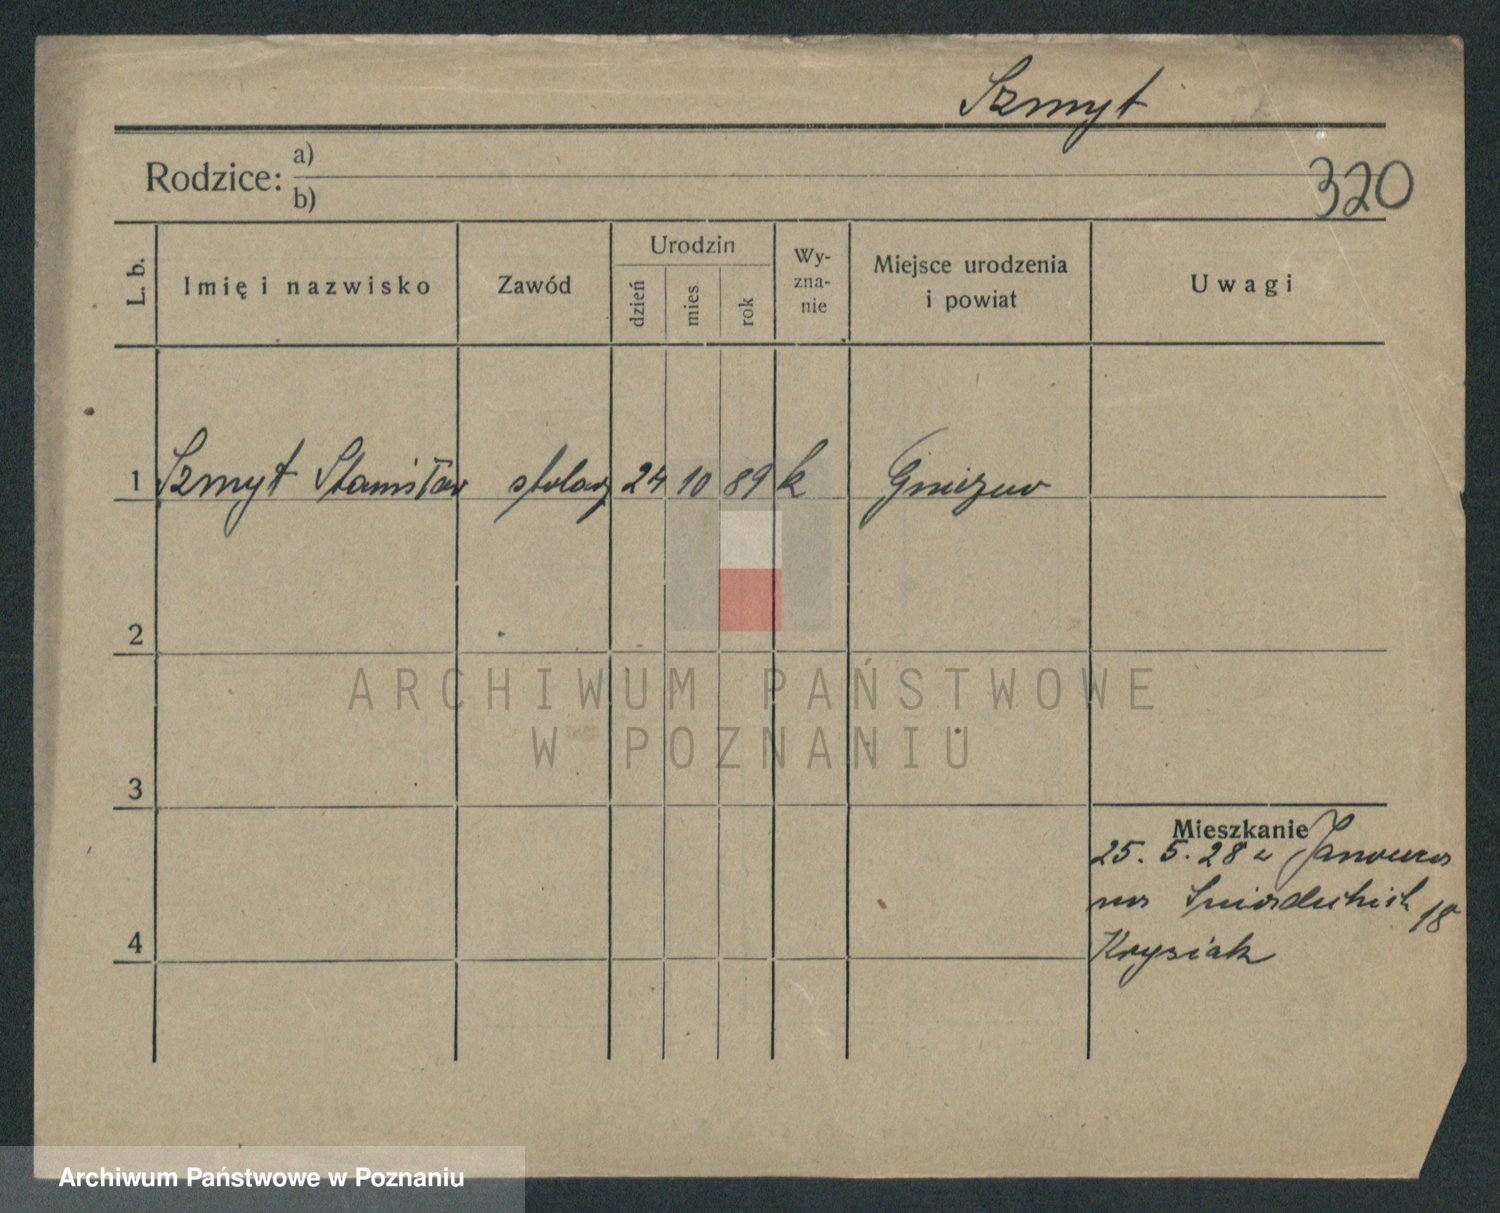 Szmyt
Rodzice: a)
b)
320
L. b.
Imię i nazwisko
Zawód
Urodzin
dzień
mies.
rok
Wy-
zna-
nie
Miejsce urodzenia
i powiat
Uwagi
1 Szmyt Stanisław stolarz 24 10 89 k Gniezno
2
ARCHIWUM PAŃSTWOWE
W POZNANIU
3
Mieszkanie
25. 5. 28 z
na Śniadeckich 18
Krysiak
4
Archiwum Państwowe w Poznaniu